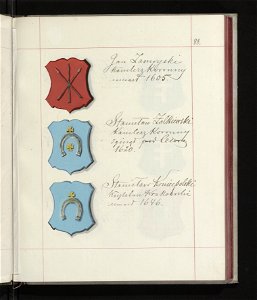 88.
Jan Zamoyski
kanclerz koronny
umarł 1605.
Stanisław Żółkiewski
kanclerz koronny
zginął pod Cecorą
1620.
Stanisław Koniecpolski
umarł 1646.